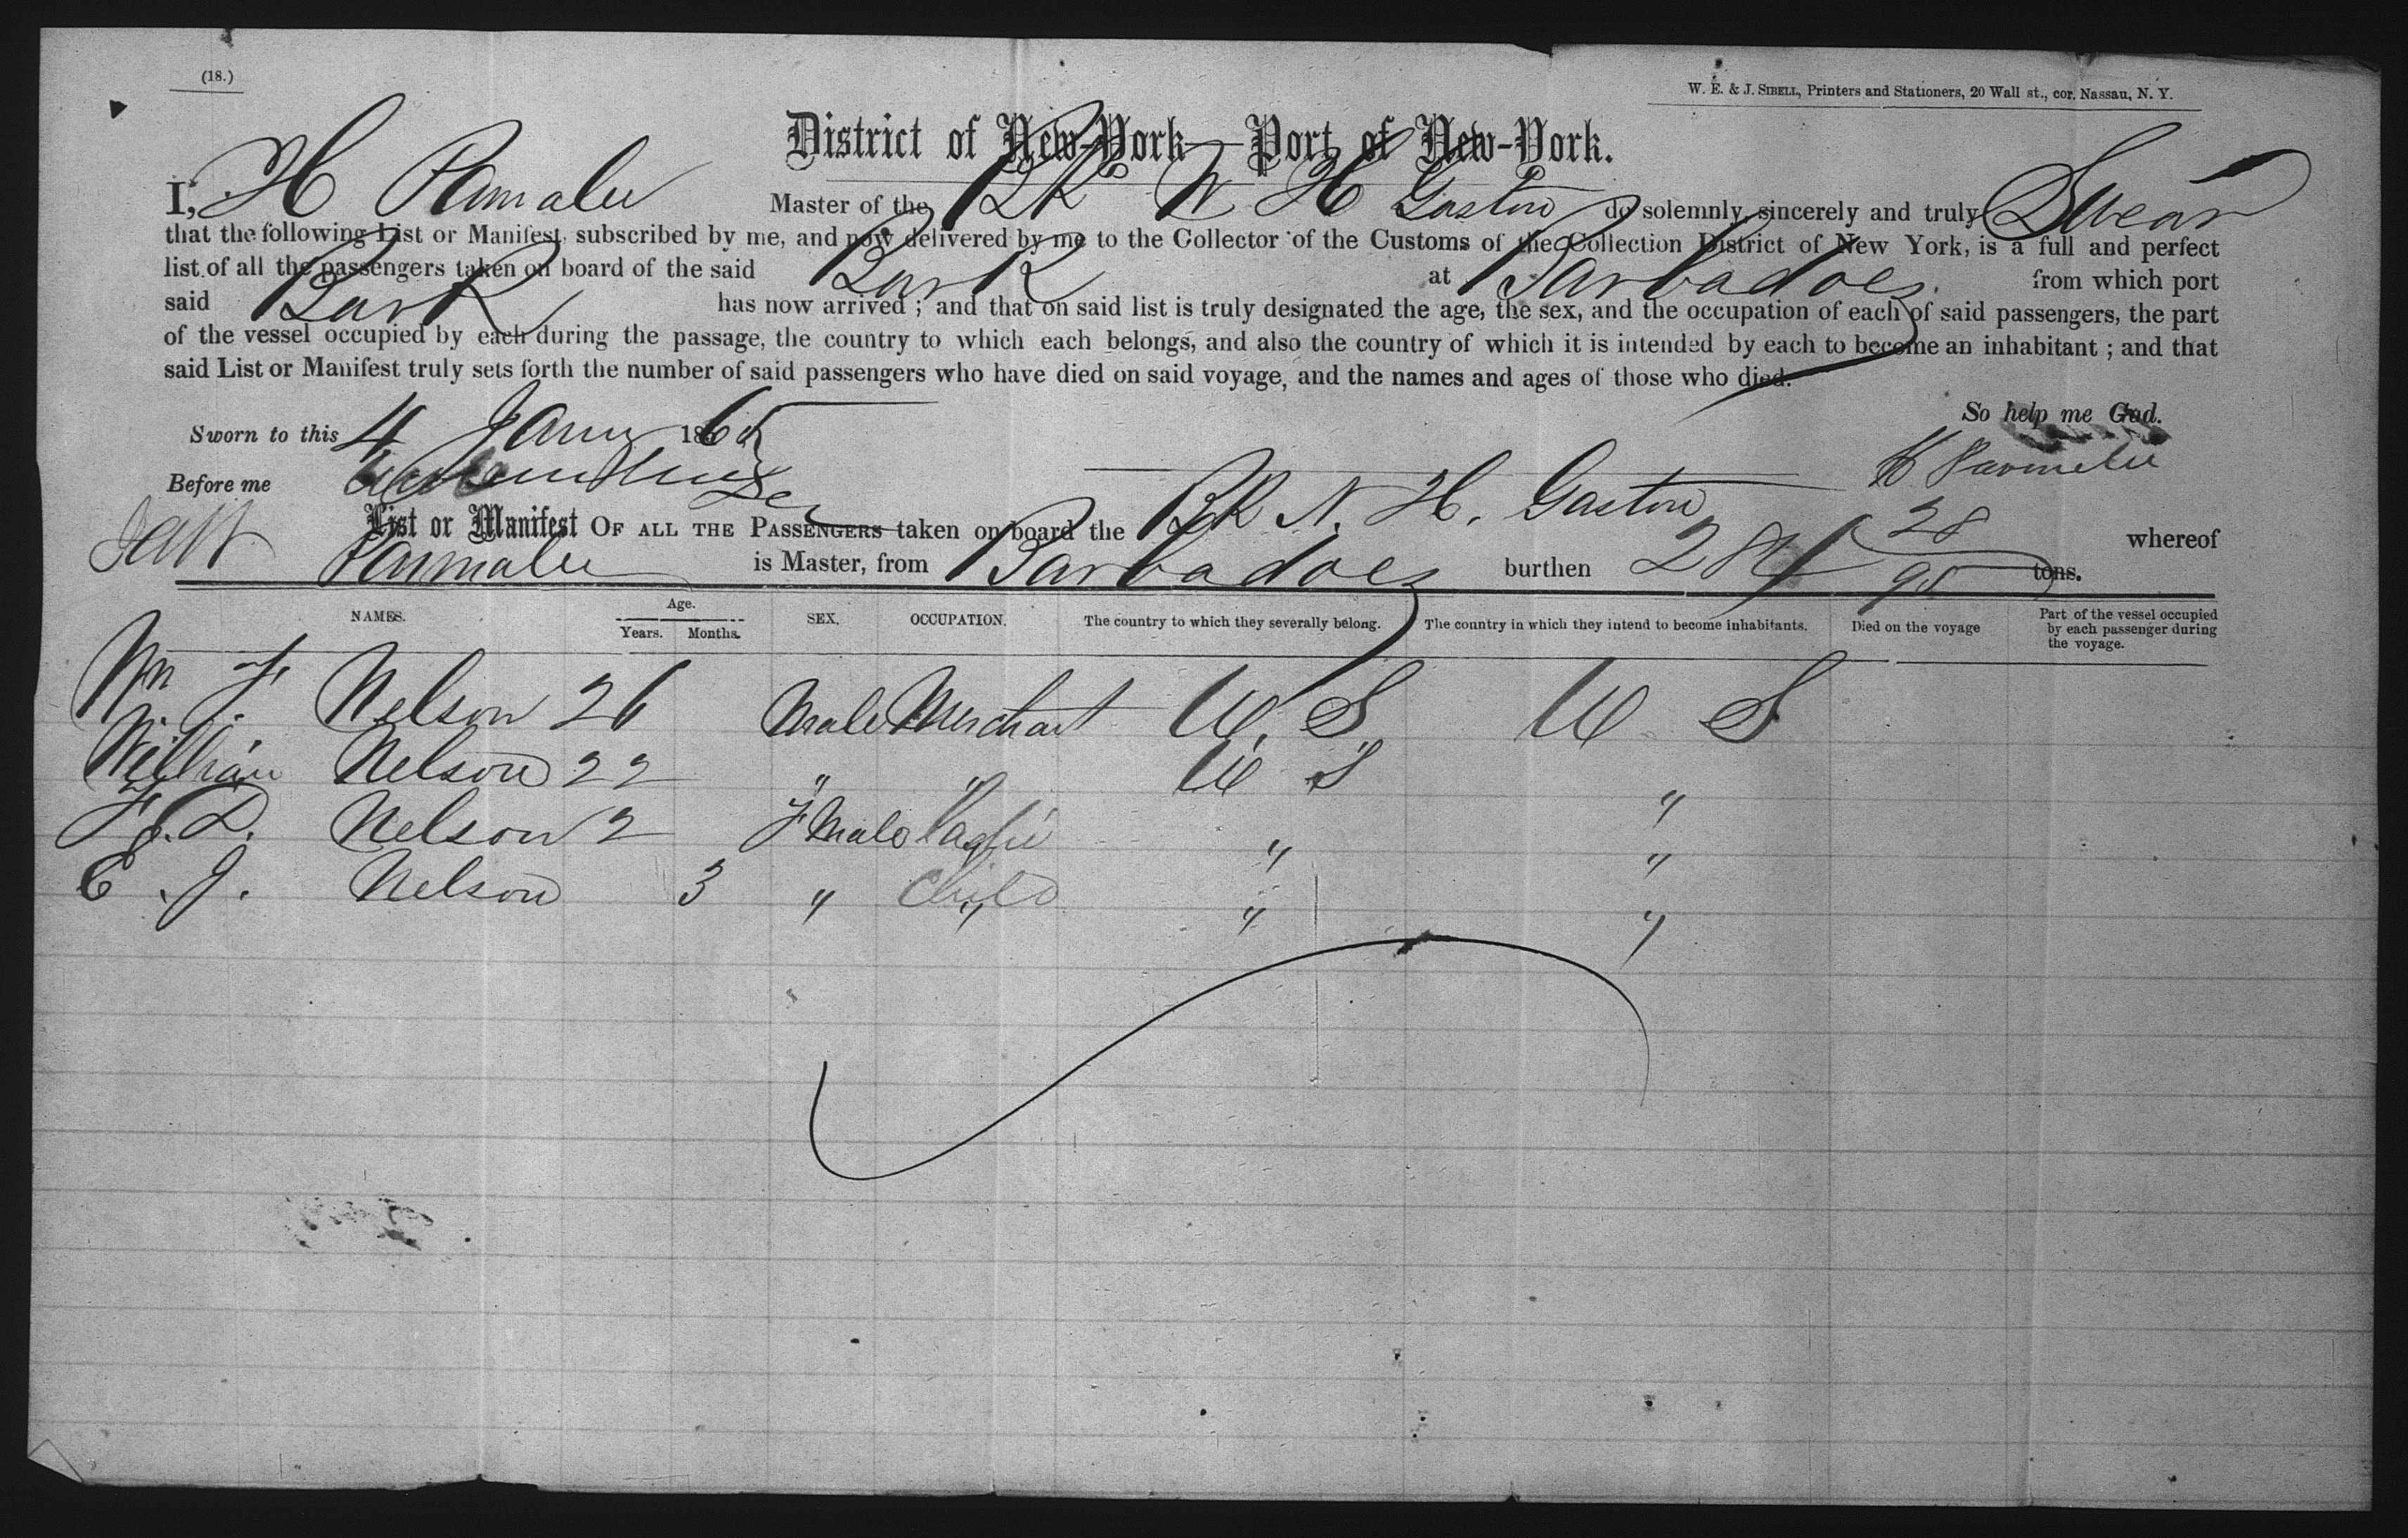 (18.)
W. E. & J. SIBELL, Printers and Stationers, 20 Wall st., cor. Nassau, N. Y.
District of New-York—Port of New-York.
I, H Parmalee Master of the Bk N H Gaston do solemnly, sincerely and truly Swear
that the following List or Manifest, subscribed by me, and now delivered by me to the Collector of the Customs of the Collection District of New York, is a full and perfect
list of all the passengers taken on board of the said Bark at Barbadoes from which port
said Bark has now arrived ; and that on said list is truly designated the age, the sex, and the occupation of each of said passengers, the part
of the vessel occupied by each during the passage, the country to which each belongs, and also the country of which it is intended by each to become an inhabitant ; and that
said List or Manifest truly sets forth the number of said passengers who have died on said voyage, and the names and ages of those who died.
So help me God.
Sworn to this 4 Jany 1865
H Parmelee
Before me
List or Manifest OF ALL THE PASSENGERS taken on board the Bk N. H. Gaston whereof
Parmalee is Master, from Barbadoes burthen 284 28/95 tons.
NAMES. Age. Years. Months. SEX. OCCUPATION. The country to which they severally belong. The country in which they intend to become inhabitants. Died on the voyage Part of the vessel occupied by each passenger during the voyage.
Wm F Nelson 26 Male Merchant U. S. U S
William Nelson 22 " " U S "
F. D. Nelson 2 F Male " "
E. J. Nelson 3 " Child " "